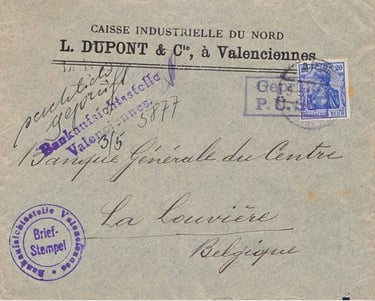 CAISSE INDUSTRIELLE DU NORD
L. DUPONT & Cie, à Valenciennes
geprüft
Bankaufsichtsstelle
Valenciennes.
5877
3/5
Geprüft
P.
20
REICH
Banque Générale du Centre
La Louvière
Belgique
Bankaufsichtsstelle Valenciennes
Brief-
Stempel